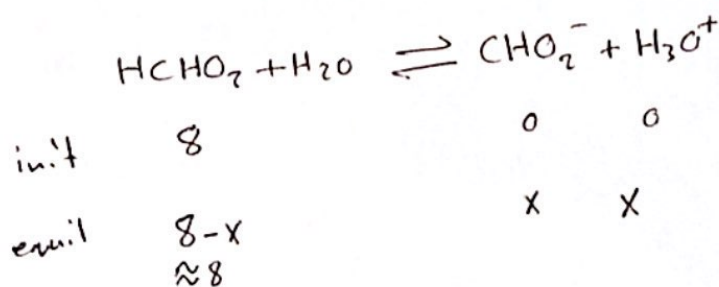 HCHO₂ + H₂O ⇌ CHO₂⁻ + H₃O⁺
init 8 0 0
equil 8-x x x
≈8